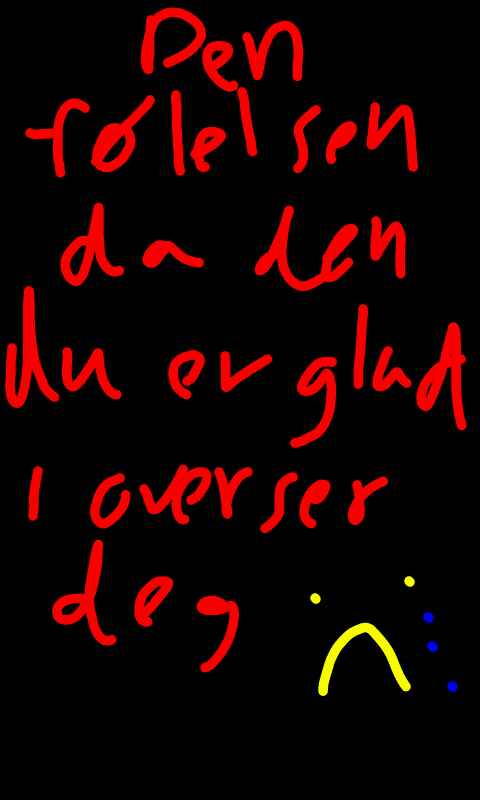 Den
følelsen
da den
du er glad
i overser
deg